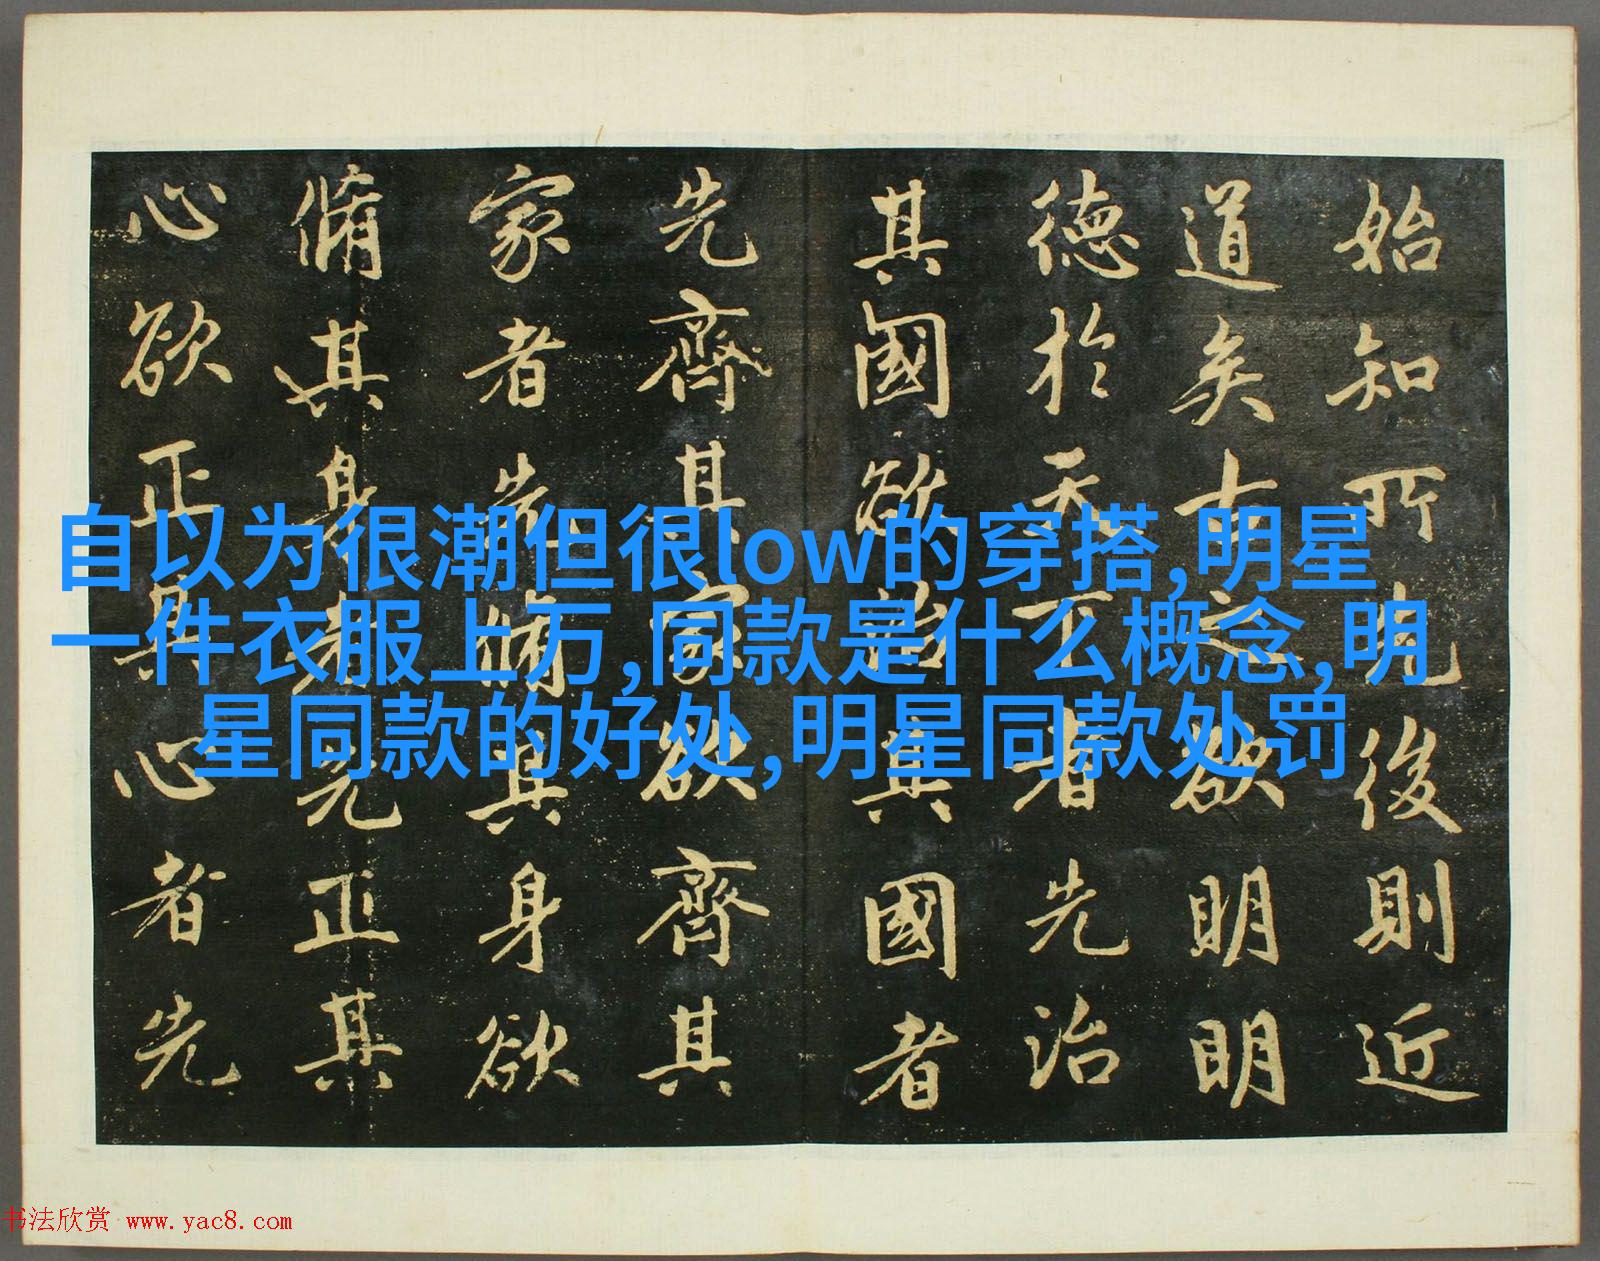 始知所先後則近
道矣古之欲明明
德於天下者先治
其國欲治其國者
先齊其家欲齊其
家者先脩其身欲
脩其身者先正其
心欲正其心者先
自以为很潮但很low的穿搭,明星
一件衣服上万,同款是什么概念,明
星同款的好处,明星同款处罚
书法欣赏 www.yac8.com